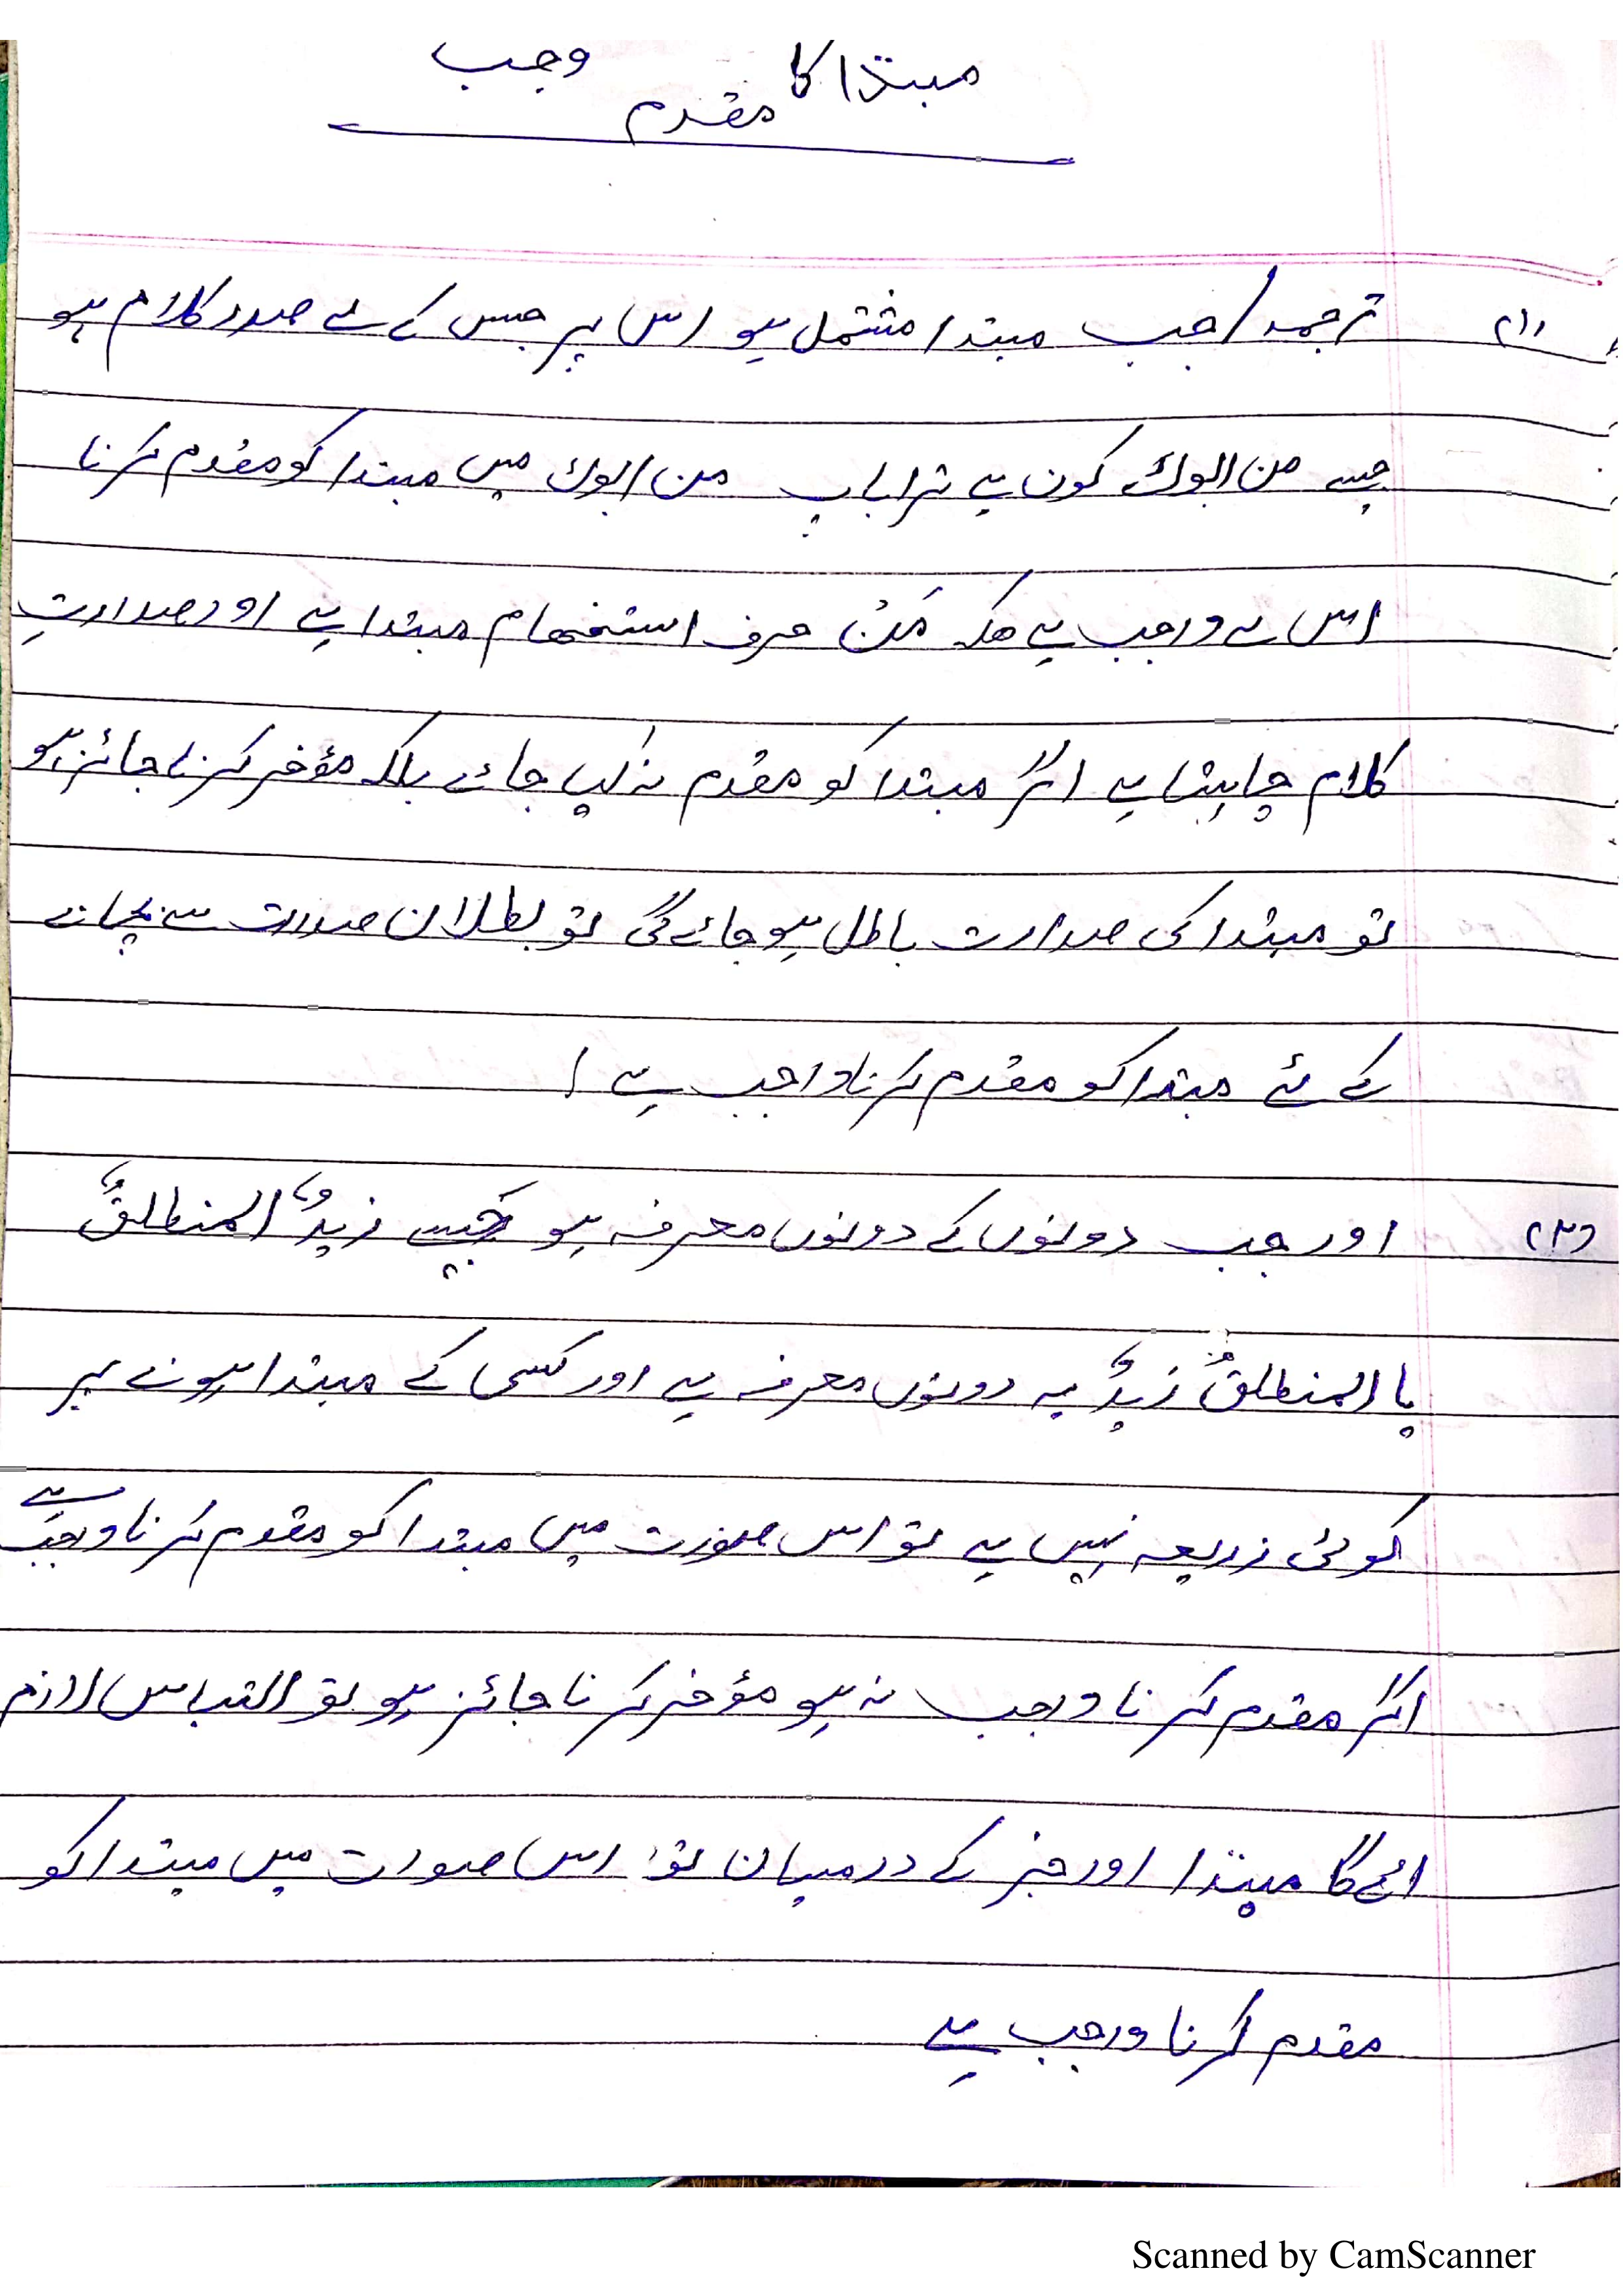 مبتدا کا مقدم وجب
(۱) ترجمہ / جب مبتدا مشتمل ہو اس پر جس کے لے صدر کلام ہو
جیسے من ابوک کون ہے تیرا باپ من ابوک میں مبتدا کو مقدم کرنا
اس لے وجب ہے مَنْ حرف استفھام مبتدا ہے اور صدارتِ
کلام چاہتا ہے اگر مبتدا کو مقدم نہ کیا جائے بلکہ مؤخر کرنا جائز ہو
تو مبتدا کی صدارت باطل ہو جائے گی تو بطلان صدارت سے بچانے
کے لئے مبتدا کو مقدم کرنا واجب ہے /
(۲) اور جب دونوں کے دونوں معرفہ ہو جیسے زیدٌ المنطلقُ
یا المنطلقُ زیدٌ یہ دونوں معرفہ ہے اور کسی کے مبتدا ہونے پر
کوئی زریعہ نہیں ہے تو اس صورت میں مبتدا کو مقدم کرنا وجب ہے
اگر مقدم کرنا وجب نہ ہو مؤخر کرنا جائز ہو تو التباس لازم
ائے گا مبتدا اور خبر کے درمیان تو اس صورت میں مبتدا کو
مقدم کرنا وجب ہے
Scanned by CamScanner